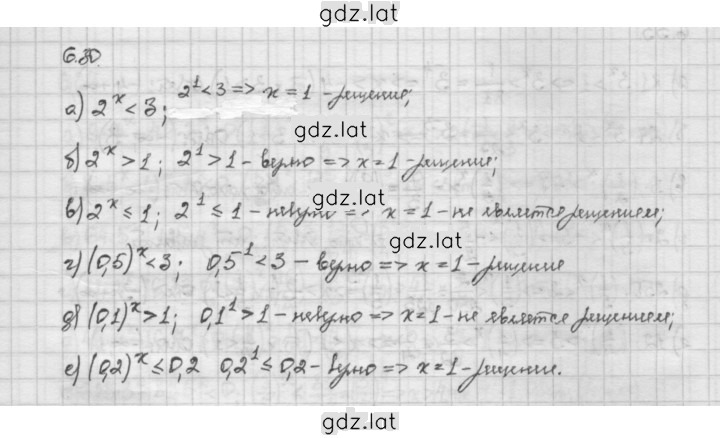 gdz.lat
6.30.
а) 2^x < 3; 2^1 < 3 => x = 1 - решение;
gdz.lat
б) 2^x > 1; 2^1 > 1 - верно => x = 1 - решение;
gdz.lat
в) 2^x ≤ 1; 2^1 ≤ 1 - неверно => x = 1 - не является решением;
gdz.lat
г) (0,5)^x < 3; 0,5^1 < 3 - верно => x = 1 - решение
gdz.lat
д) (0,1)^x > 1; 0,1^1 > 1 - неверно => x = 1 - не является решением;
gdz.lat
е) (0,2)^x ≤ 0,2 0,2^1 ≤ 0,2 - верно => x = 1 - решение.
gdz.lat